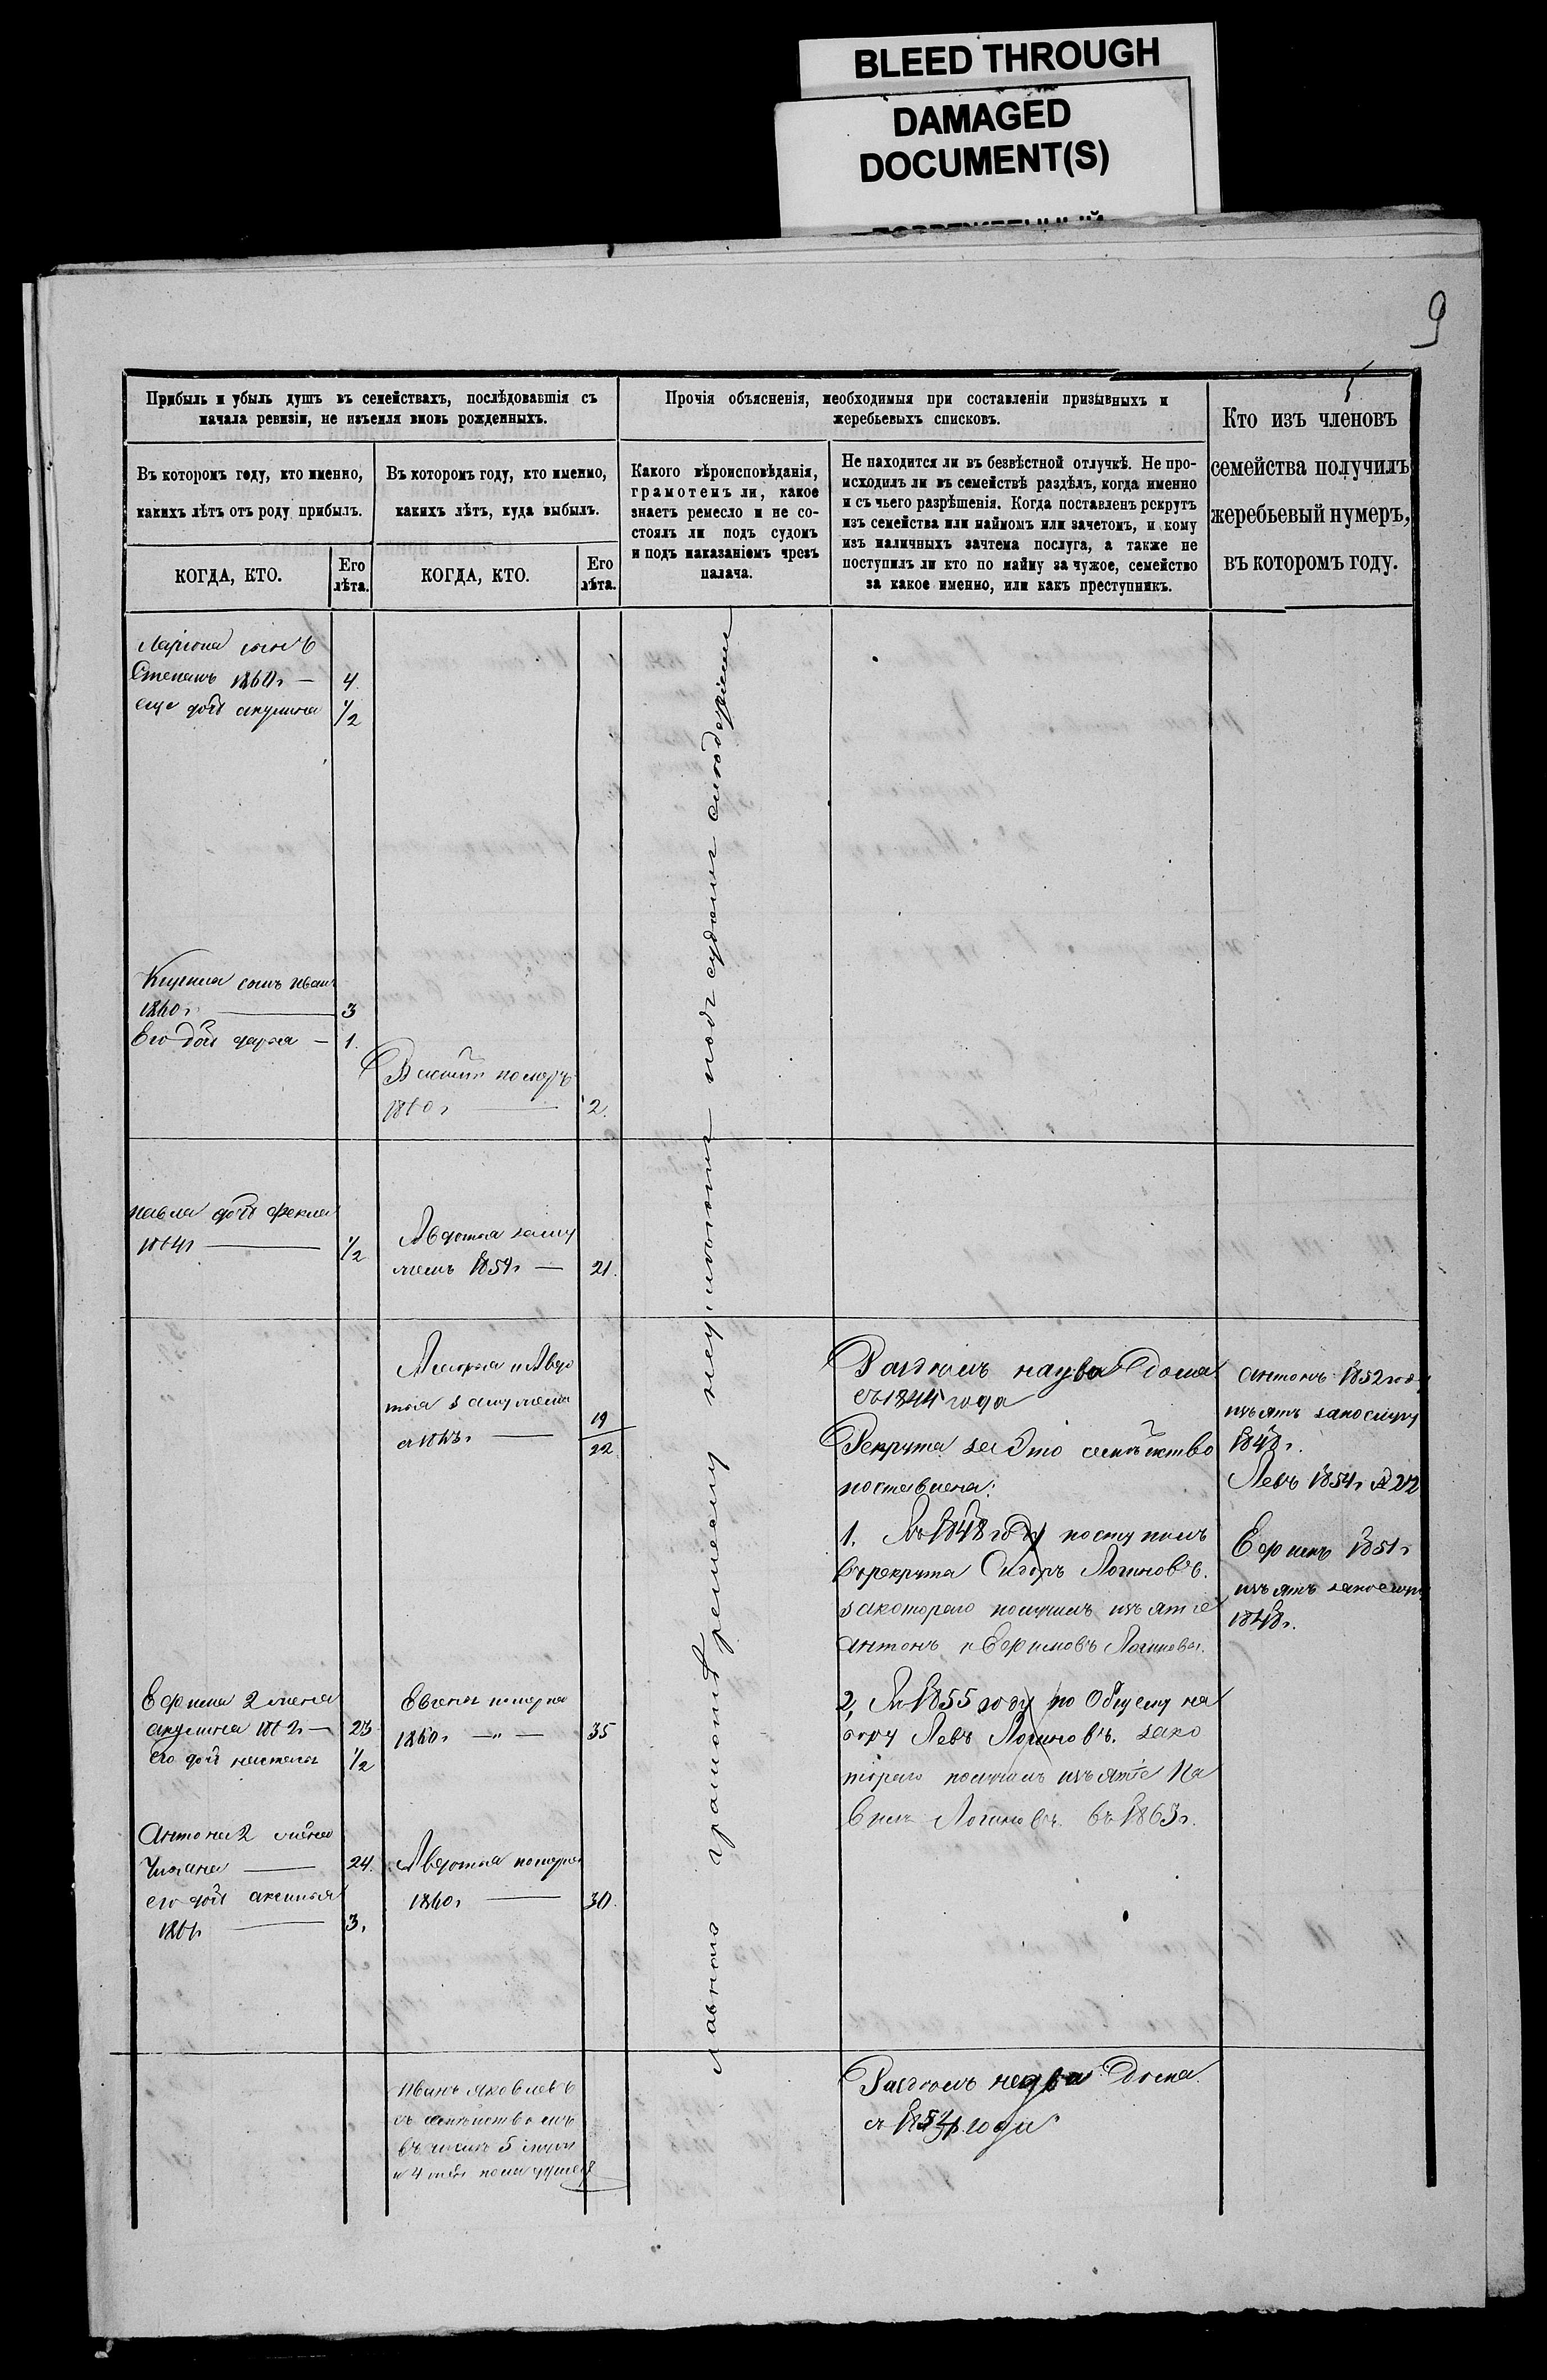 BLEED THROUGH
DAMAGED
DOCUMENT(S)
9
Прибыль и убыль душъ въ семействахъ, послѣдовавшія съ
начала ревизіи, не изъемля вновь рожденныхъ.
Въ которомъ году, кто именно,
какихъ лѣтъ отъ роду прибылъ.
КОГДА, КТО.
Его
лѣта.
Въ которомъ году, кто именно,
какихъ лѣтъ, куда выбылъ.
КОГДА, КТО.
Его
лѣта.
Прочія объясненія, необходимыя при составленіи призывныхъ и
жеребьевыхъ списковъ.
Какого вѣроисповѣданія,
грамотенъ ли, какое
знаетъ ремесло и не со-
стоялъ ли подъ судомъ
и подъ наказаніемъ чрезъ
палача.
Не находится ли въ безвѣстной отлучкѣ. Не про-
исходилъ ли въ семействѣ раздѣлъ, когда именно
и съ чьего разрѣшенія. Когда поставленъ рекрутъ
изъ семейства или наймомъ или зачетомъ, и кому
изъ наличныхъ зачтена послуга, а также не
поступилъ ли кто по найму за чужое, семейство
за какое именно, или какъ преступникъ.
Кто изъ членовъ
семейства получилъ
жеребьевый нумеръ,
въ которомъ году.
Ларіона сынъ
Степанъ 1860г — 4
еще дочь акулина 1/2
сынъ иванъ
1860г — 3
Его дочь дарья — 1.
померъ
1860г — 2.
павла дочь фекла
1864г — 1/2
Авдотья заму
жемъ 1859г — 21.
и Авдо
тья замужемъ
19
22
Ефима 2 жена
акулина 1862г — 23
его дочь 1/2
померла
1860г — „ — 35
Антона 2 жена
24.
его дочь аксинья
3.
Авдотья померла
1860г — 30.
иванъ яковлевъ
съ семействомъ
въ числѣ 5 муж
и 4
грамотѣ ремеслу неумѣютъ подъ судомъ
на два Дома
съ 1844 года
Рекрута за Это семѣйство
поставлена:
1. Въ 1848 году поступилъ
въ рекрута Сидоръ Логиновъ.
закотораго получилъ изъятіе
антонъ и Ефимовъ Логиновы.
2, Въ 1855 году по Общему на
бору Левъ Логиновъ. зако
тораго получилъ изъятіе Па
велъ Логиновъ. въ 1863г.
на два Дома
антонъ 1852 году
изъятъ запослугу
1848г.
Левъ 1854г № 212
Ефимъ 1851г
изъятъ запослугу
1848г.